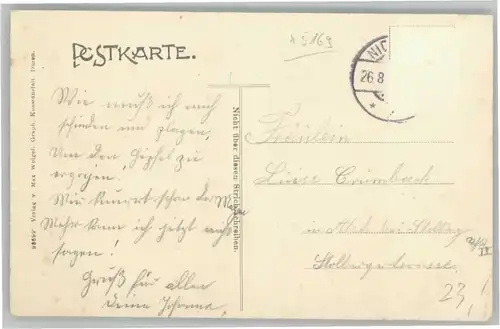 POSTKARTE.
A 5169
NIC
26.8
Wie muß ich mich
schinden und plagen,
Um den Gipfel zu
ersteigen.
Wie kommt schon der
Mehr kann ich jetzt nicht
sagen!
Gruß für alle
deine Johanna
Nicht über diesen Strich schreiben.
Verlag v. Max Weigel, Graph. Kunstanstalt, Düren.
Fräulein
Luise Crumbach
in bei Stolberg
Stolbergerstrasse
23,!